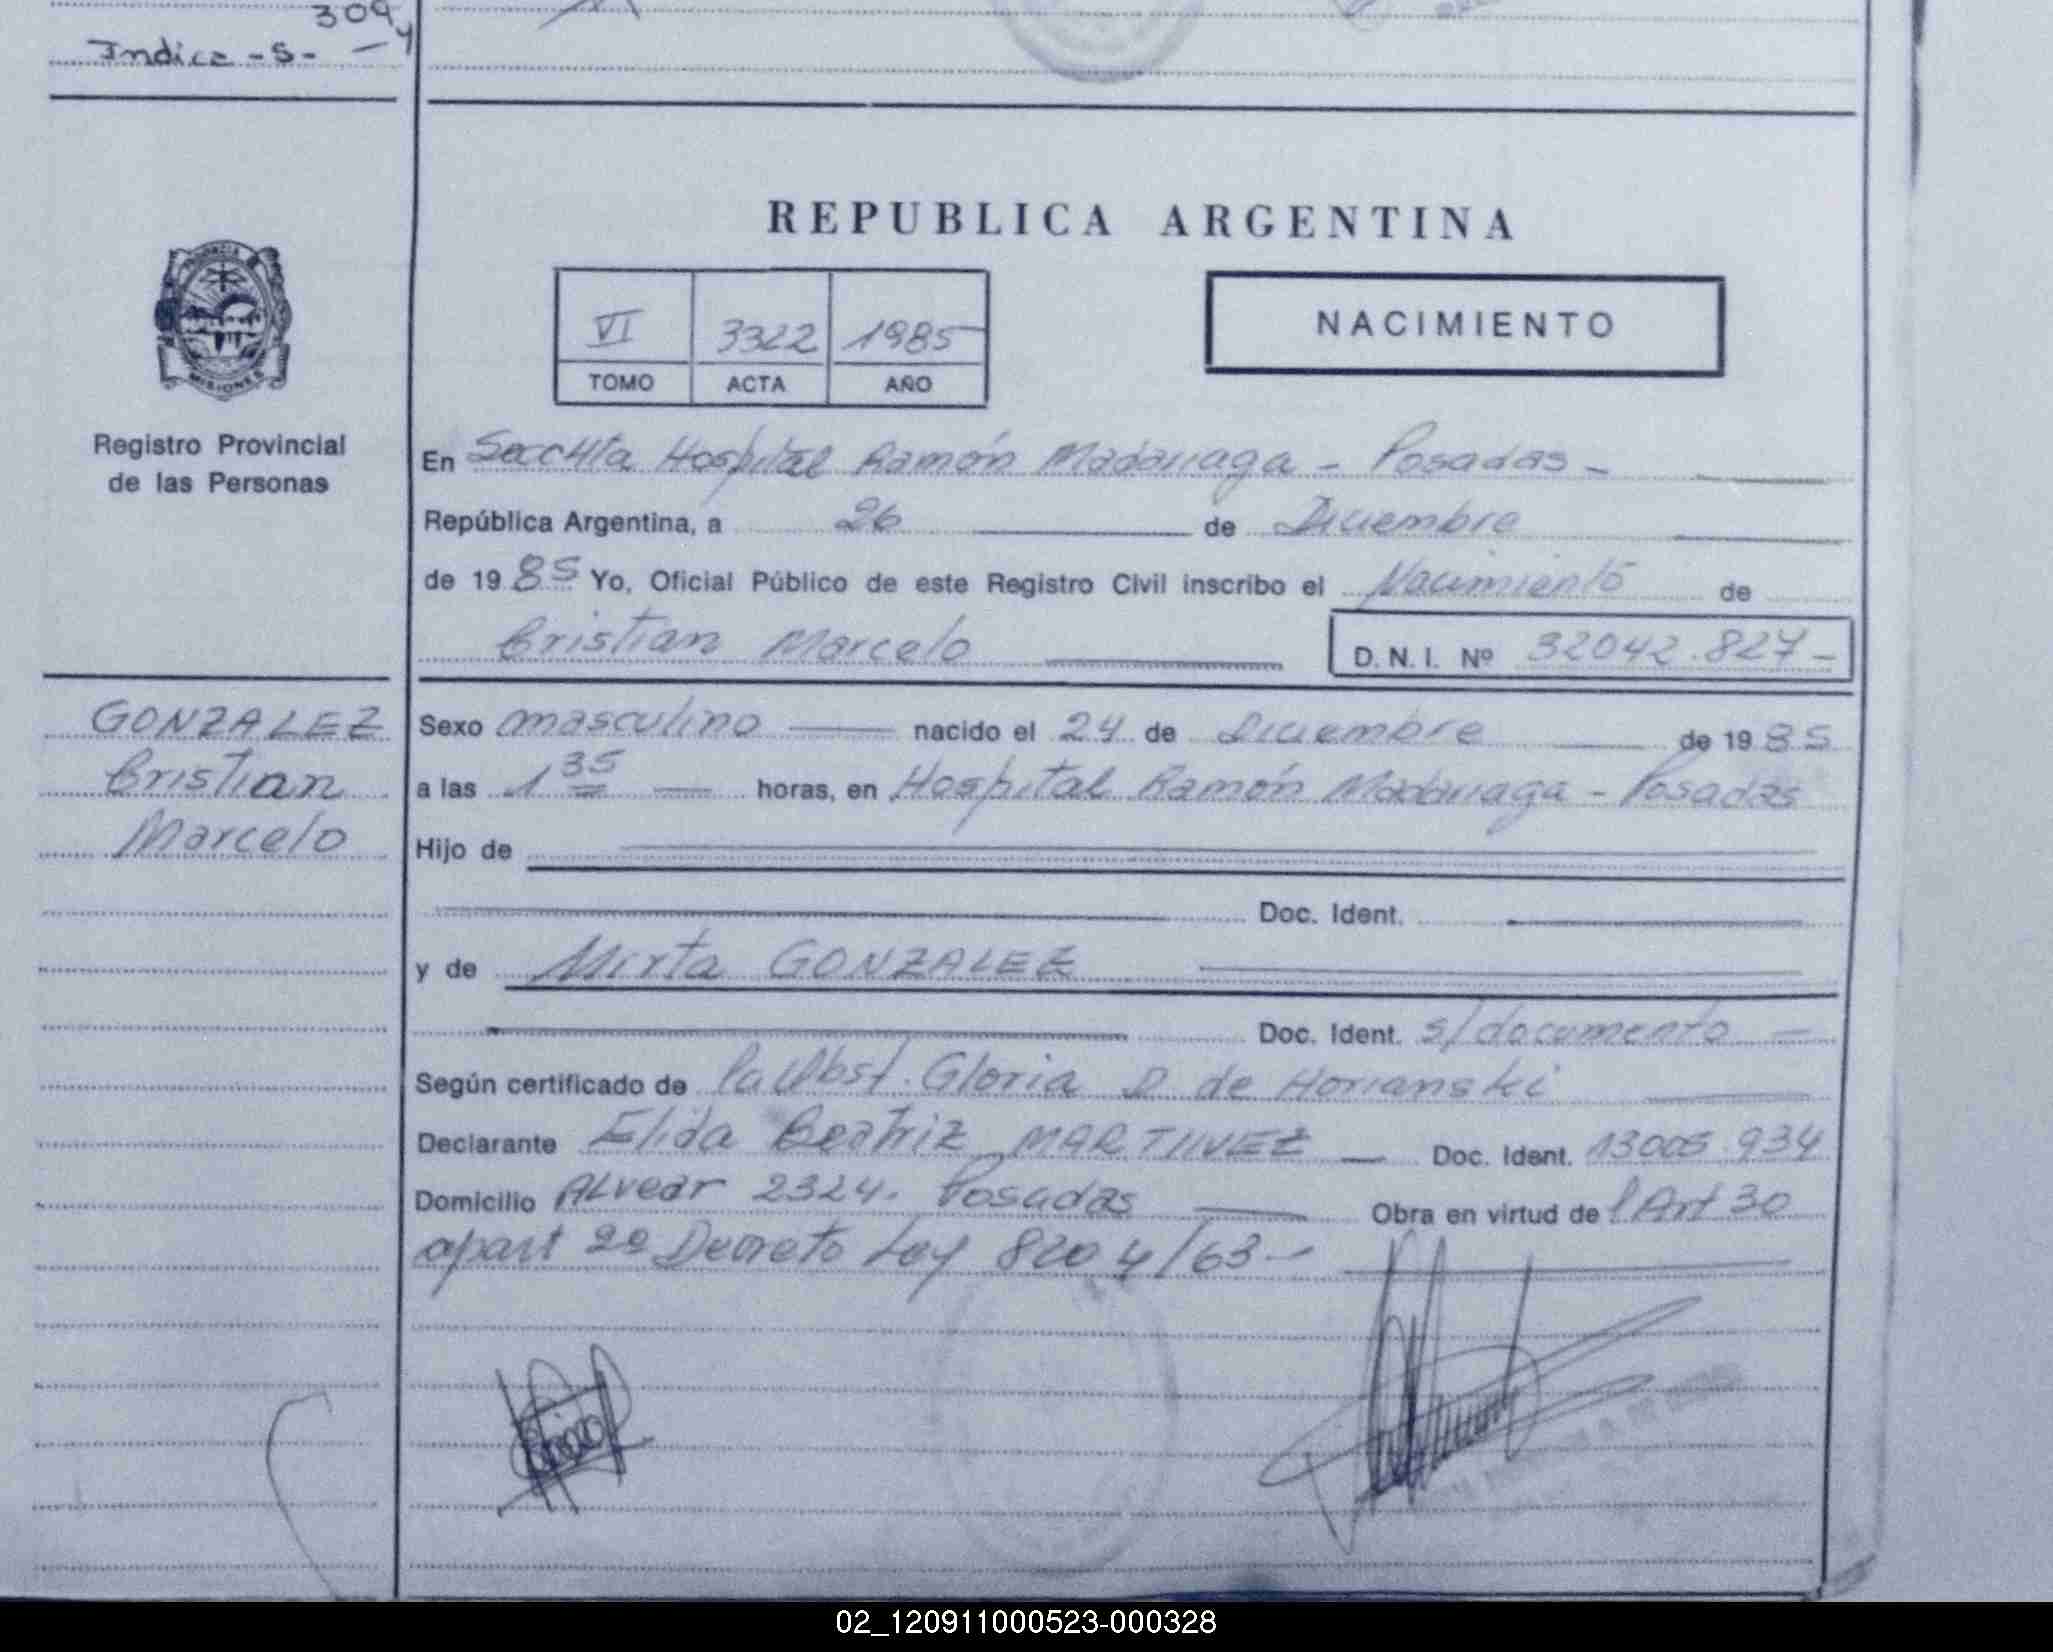 309
Indice -S-
REPUBLICA ARGENTINA
VI 3322 1985
TOMO ACTA AÑO
NACIMIENTO
MISIONES
Registro Provincial
de las Personas
En Secc 4ta Hospital Ramón Madariaga - Posadas -
República Argentina, a 26 de Diciembre
de 1985 Yo, Oficial Público de este Registro Civil inscribo el Nacimiento de
Cristian Marcelo D.N.I. Nº 32042.827-
GONZALEZ
Cristian
Marcelo
Sexo masculino nacido el 24 de Diciembre de 1985
a las 1 35 horas, en Hospital Ramón Madariaga - Posadas
Hijo de
Doc. Ident.
y de Mirta GONZALEZ
Doc. Ident. s/documento
Según certificado de la Obst. Gloria D de Horianski
Declarante Elida Beatriz MARTINEZ Doc. Ident. 13005.934
Domicilio Alvear 2324. Posadas Obra en virtud del Art 30
apart 2º Decreto Ley 8204/63-
02_120911000523-000328